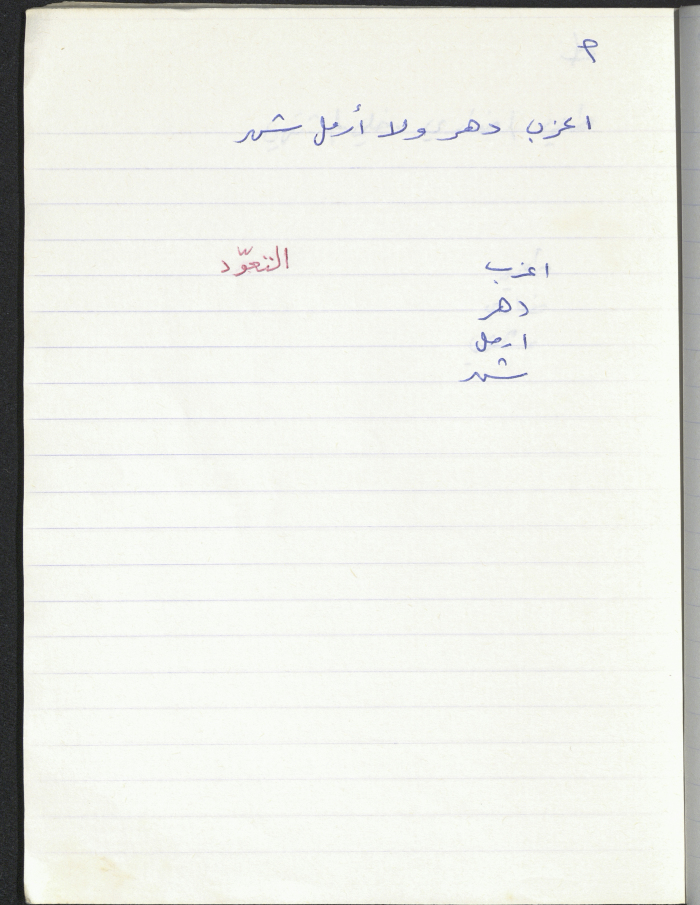 اعزب دهر ولا أرمل شهر
اعزب التعوّد
دهر
ارمل
شهر